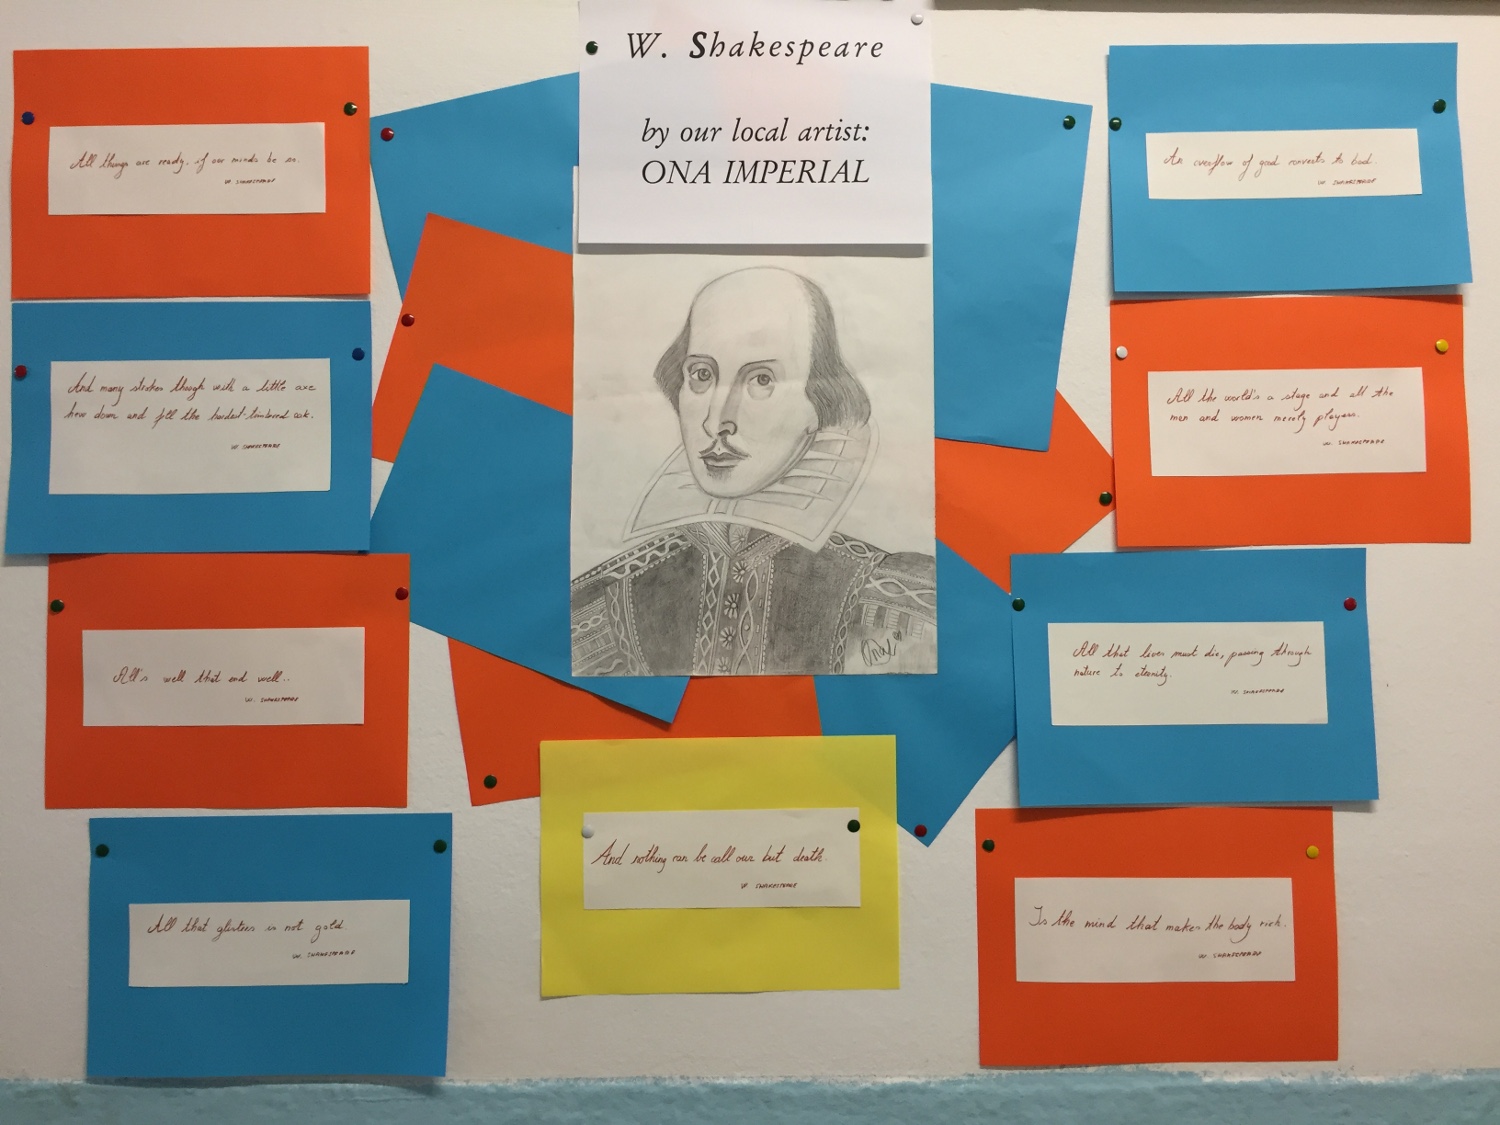 W. Shakespeare
by our local artist:
ONA IMPERIAL
All things are ready, if our minds be so.
W. SHAKESPEARE
And many strokes though with a little axe
hew down and fell the hardest-timbered oak.
W. SHAKESPEARE
All's well that end well..
W. SHAKESPEARE
All that glisters is not gold.
W. SHAKESPEARE
And nothing can be call our but death.
W. SHAKESPEARE
An overflow of good converts to bad.
W. SHAKESPEARE
All the world's a stage and all the
men and women merely players.
W. SHAKESPEARE
All that lives must die, passing through
nature to eternity.
W. SHAKESPEARE
Is the mind that makes the body rich.
W. SHAKESPEARE
Ona